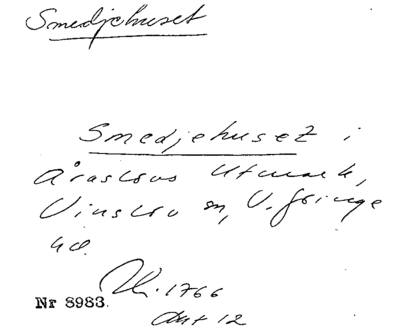 Smedjehuset
Smedjehuset i
Åraslövs Utmark,
Vinslöv sn, V. Göinge
hd.
1766
Nr 8983.
Akt 12